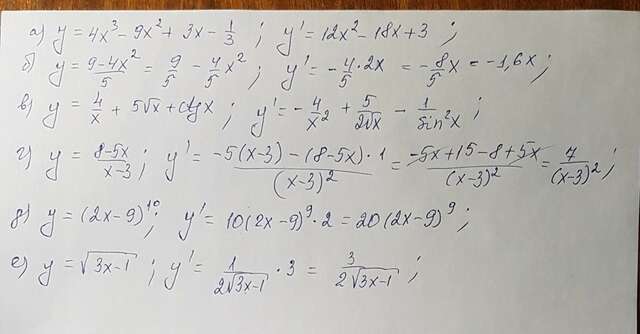 а) y = 4x³ - 9x² + 3x - 1/3 ; y' = 12x² - 18x + 3 ;
б) y = (9-4x²)/5 = 9/5 - 4/5 x² ; y' = -4/5 · 2x = -8/5 x = -1,6x ;
в) y = 4/x + 5√x + ctg x ; y' = -4/x² + 5/(2√x) - 1/sin²x ;
г) y = (8-5x)/(x-3) ; y' = (-5(x-3) - (8-5x)·1)/(x-3)² = (-5x+15-8+5x)/(x-3)² = 7/(x-3)² ;
д) y = (2x-9)¹⁰ ; y' = 10(2x-9)⁹ · 2 = 20(2x-9)⁹ ;
е) y = √(3x-1) ; y' = 1/(2√(3x-1)) · 3 = 3/(2√(3x-1)) ;